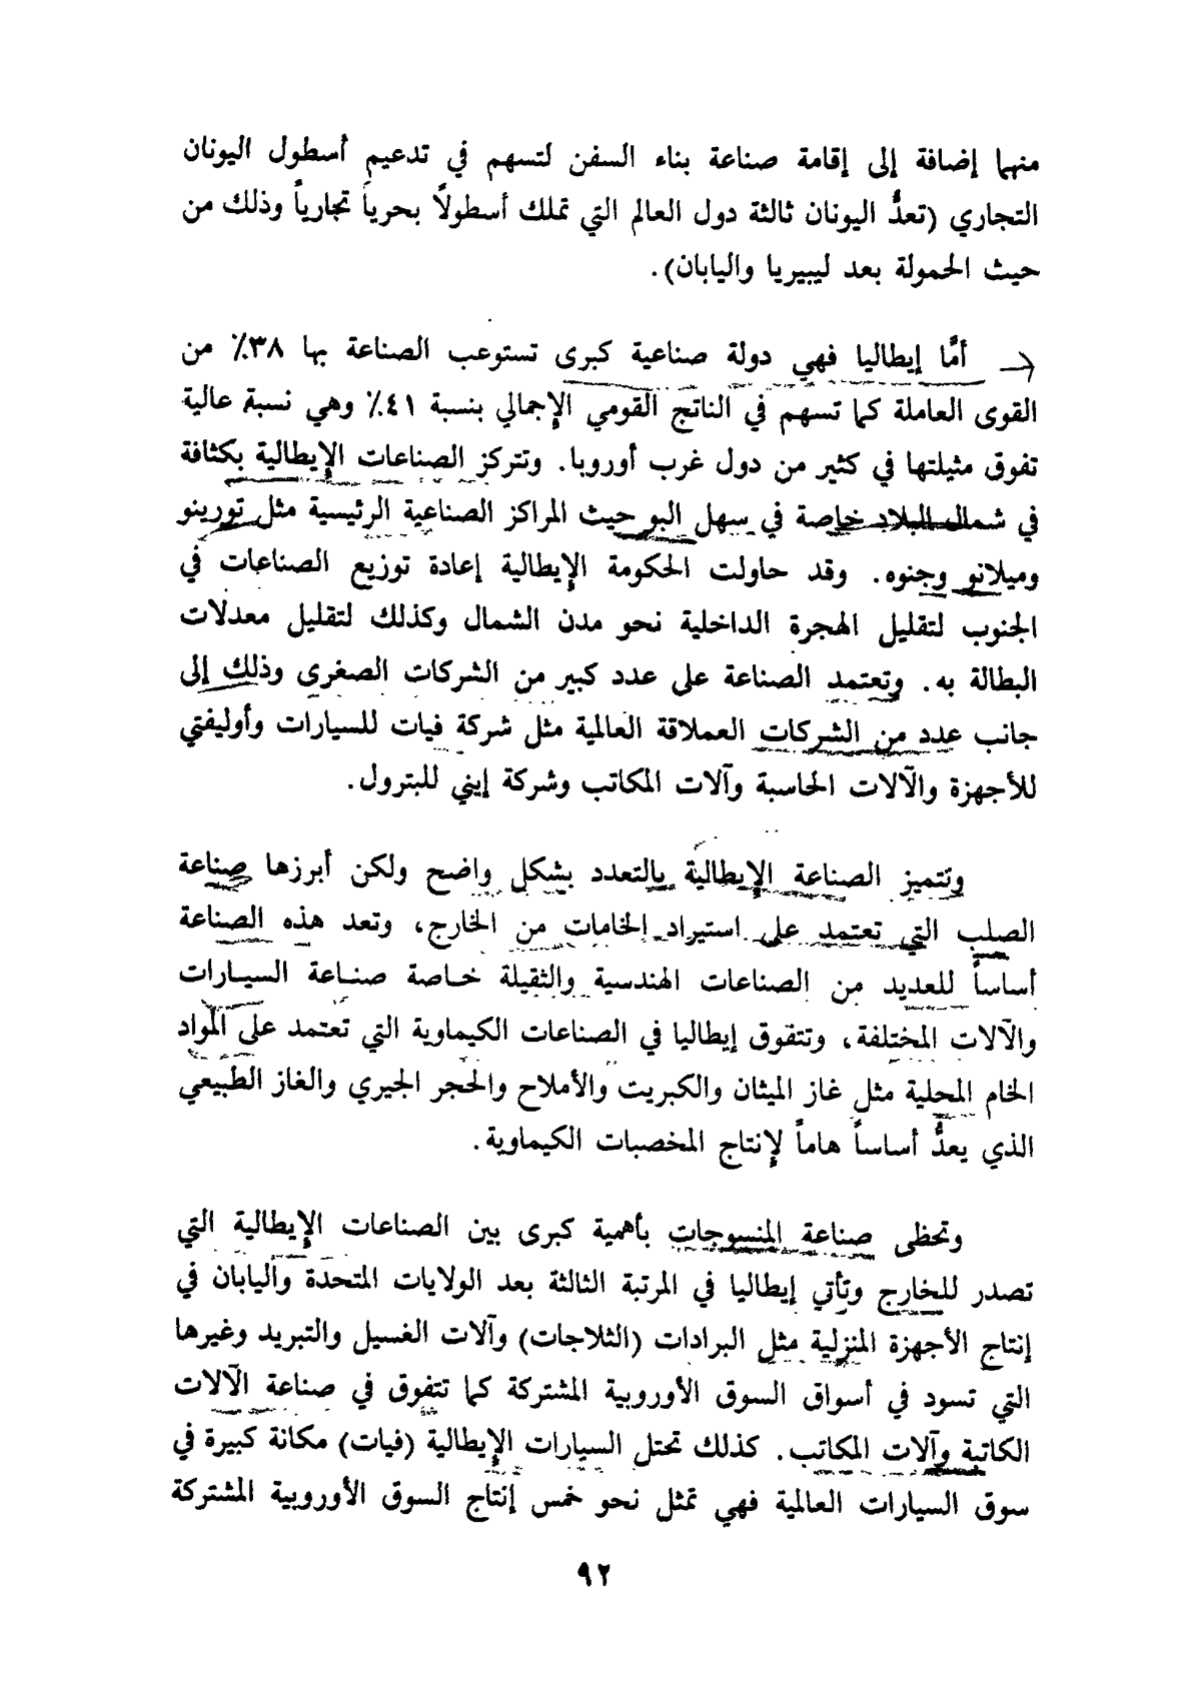 منها إضافة إلى إقامة صناعة بناء السفن لتسهم في تدعيم أسطول اليونان
التجاري (تعدُّ اليونان ثالثة دول العالم التي تملك أسطولاً بحرياً تجارياً وذلك من
حيث الحمولة بعد ليبيريا واليابان).
أمَّا إيطاليا فهي دولة صناعية كبرى تستوعب الصناعة بها ٣٨٪ من
القوى العاملة كما تسهم في الناتج القومي الإجمالي بنسبة ٤١٪ وهي نسبة عالية
تفوق مثيلتها في كثير من دول غرب أوروبا. وتتركز الصناعات الإيطالية بكثافة
في شمال البلاد خاصة في سهل البو حيث المراكز الصناعية الرئيسية مثل تورينو
وميلانو وجنوه. وقد حاولت الحكومة الإيطالية إعادة توزيع الصناعات في
الجنوب لتقليل الهجرة الداخلية نحو مدن الشمال وكذلك لتقليل معدلات
البطالة به. وتعتمد الصناعة على عدد كبير من الشركات الصغرى وذلك إلى
جانب عدد من الشركات العملاقة العالمية مثل شركة فيات للسيارات وأوليفتي
للأجهزة والآلات الحاسبة وآلات المكاتب وشركة إيني للبترول.
وتتميز الصناعة الإيطالية بالتعدد بشكل واضح ولكن أبرزها صناعة
الصلب التي تعتمد على استيراد الخامات من الخارج، وتعد هذه الصناعة
أساساً للعديد من الصناعات الهندسية والثقيلة خاصة صناعة السيارات
والآلات المختلفة، وتتفوق إيطاليا في الصناعات الكيماوية التي تعتمد على المواد
الخام المحلية مثل غاز الميثان والكبريت والأملاح والحجر الجيري والغاز الطبيعي
الذي يعدُّ أساساً هاماً لإنتاج المخصبات الكيماوية.
وتحظى صناعة المنسوجات بأهمية كبرى بين الصناعات الإيطالية التي
تصدر للخارج وتأتي إيطاليا في المرتبة الثالثة بعد الولايات المتحدة واليابان في
إنتاج الأجهزة المنزلية مثل البرادات (الثلاجات) وآلات الغسيل والتبريد وغيرها
التي تسود في أسواق السوق الأوروبية المشتركة كما تتفوق في صناعة الآلات
الكاتبة وآلات المكاتب. كذلك تحتل السيارات الإيطالية (فيات) مكانة كبيرة في
سوق السيارات العالمية فهي تمثل نحو خمس إنتاج السوق الأوروبية المشتركة
٩٢